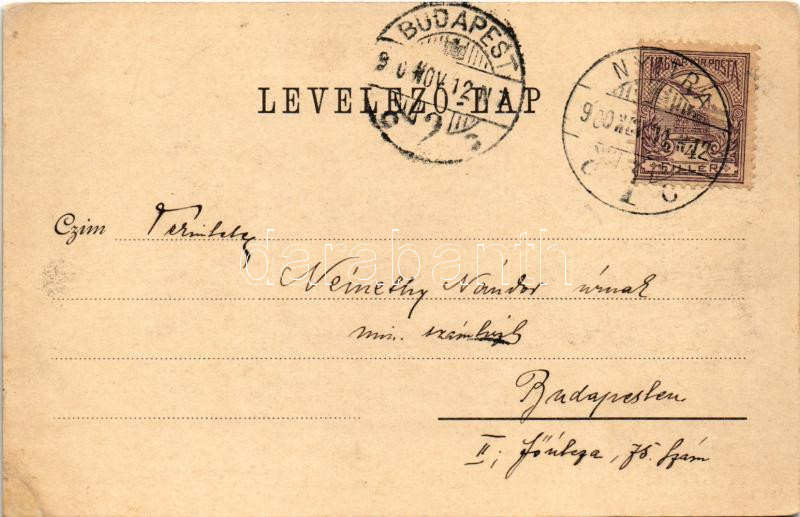 BUDAPEST
900 NOV. 12. N
MAGYAR KIR. POSTA
NYITRA
900 NOV. 11. N
FILLÉR
LEVELEZŐ-LAP
Czim
darabanth
Némethy Nándor úrnak
min. számtiszt
Budapesten
II; Főutcza, 75. szám